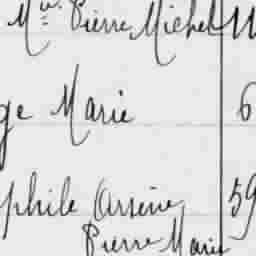 Mie Pierre Michel
ge Marie 6
phile Arsène 59
Pierre Marie